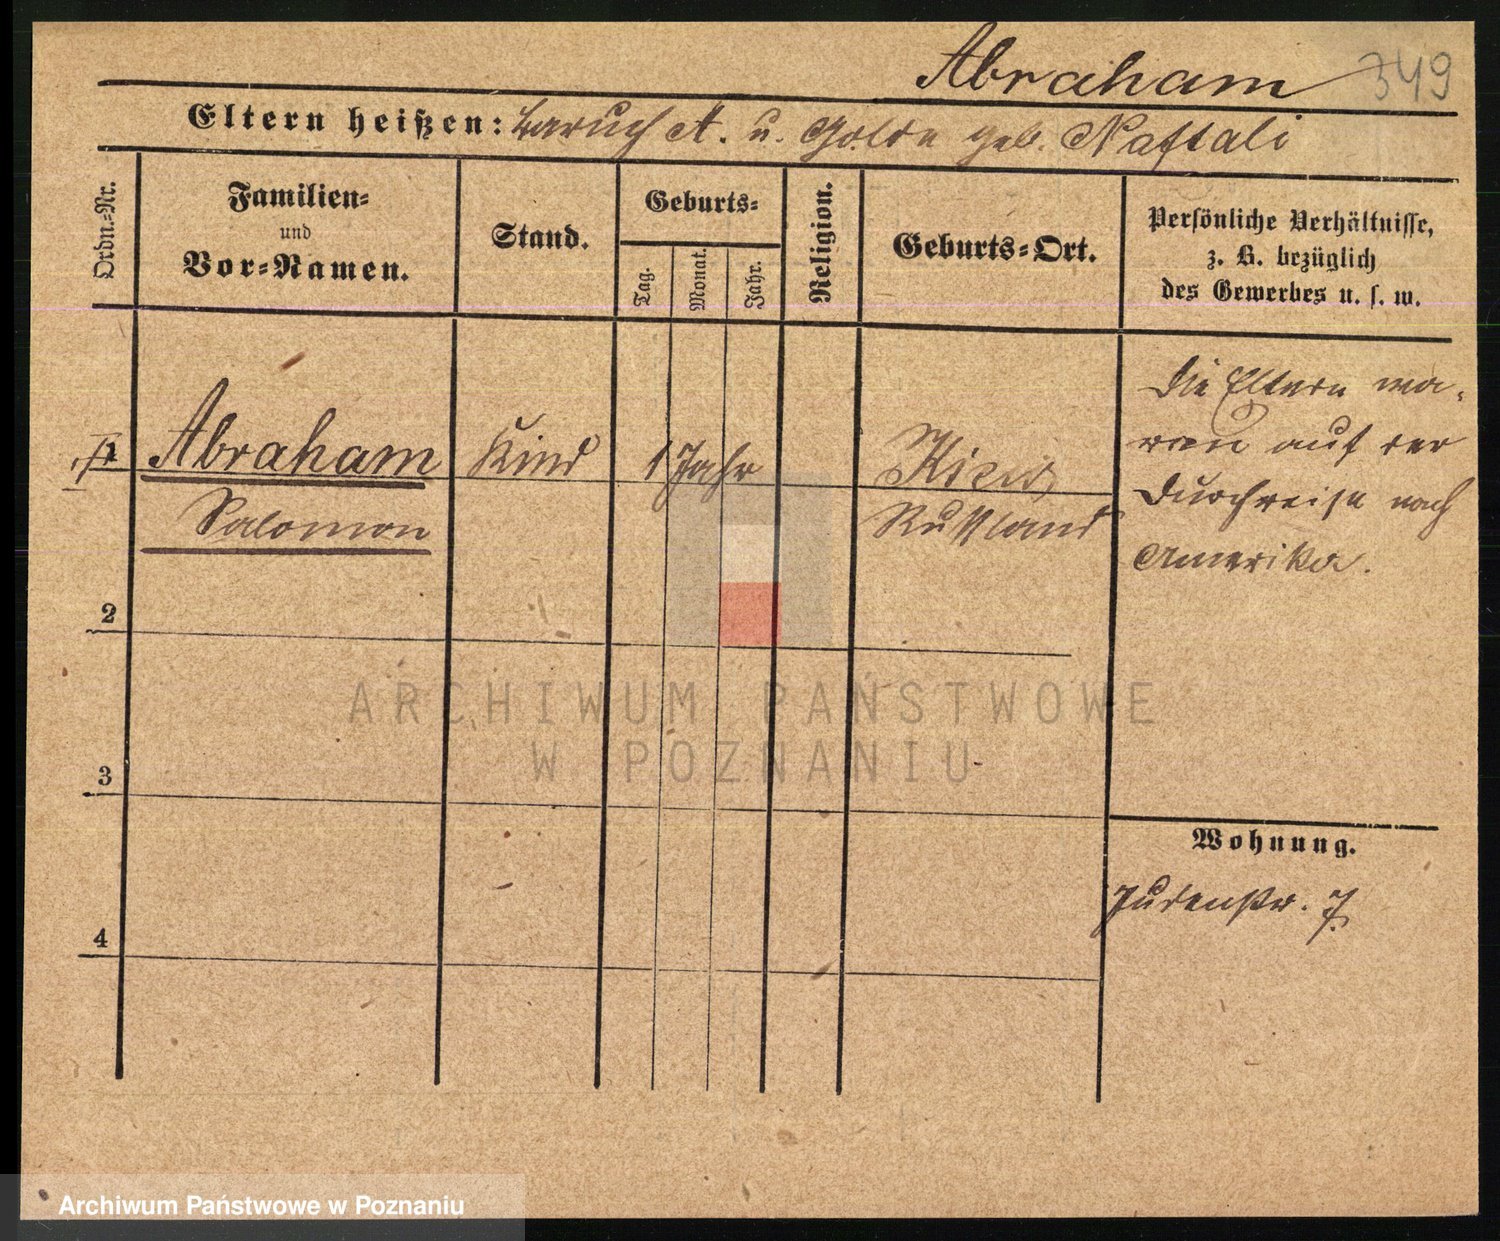 Abraham 349
Eltern heißen: Baruch A. u. Golda geb. Naftali
Ordn.=Nr.
Familien=
und
Vor=Namen.
Stand.
Geburts=
Tag.
Monat.
Jahr.
Religion.
Geburts=Ort.
Persönliche Verhältnisse,
z. B. bezüglich
des Gewerbes u. s. w.
1 Abraham Kind 1 Jahr Kiew
Salomon Russland
Die Eltern wa-
ren auf der
Durchreise nach
Amerika.
2
3
4
Wohnung.
Judenstr. 7
ARCHIWUM PAŃSTWOWE
W POZNANIU
Archiwum Państwowe w Poznaniu